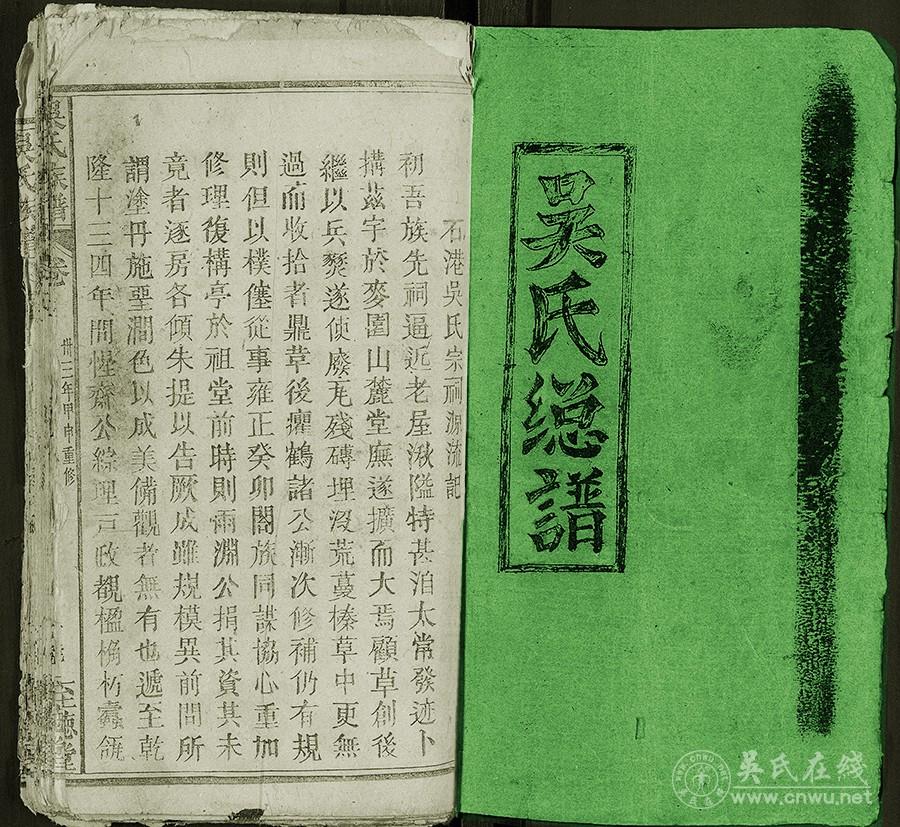 吴氏総譜
石港吳氏宗祠源流記
初吾族先祠逼近老屋湫隘特甚洎太常發迹卜
搆茲宇於麥園山麓堂廡遂擴而大焉顧草創後
繼以兵燹遂使廢瓦殘磚埋沒荒蔓榛草中更無
過而收拾者鼎革後癯鶴諸公漸次修補仍有規
則但以樸僿從事雍正癸卯闔族同謀協心重加
修理復構亭於祖堂前時則雨淵公捐其資其未
竟者逐房各傾朱提以告厥成雖規模異前問所
謂塗丹施堊潤色以成美備觀者無有也遞至乾
隆十三四年間惺齋公綜理戸政覩楹桷朽蠹頹
吳氏族譜 卷
卅三年甲申重修
至德堂
吴氏在线
www.cnwu.net